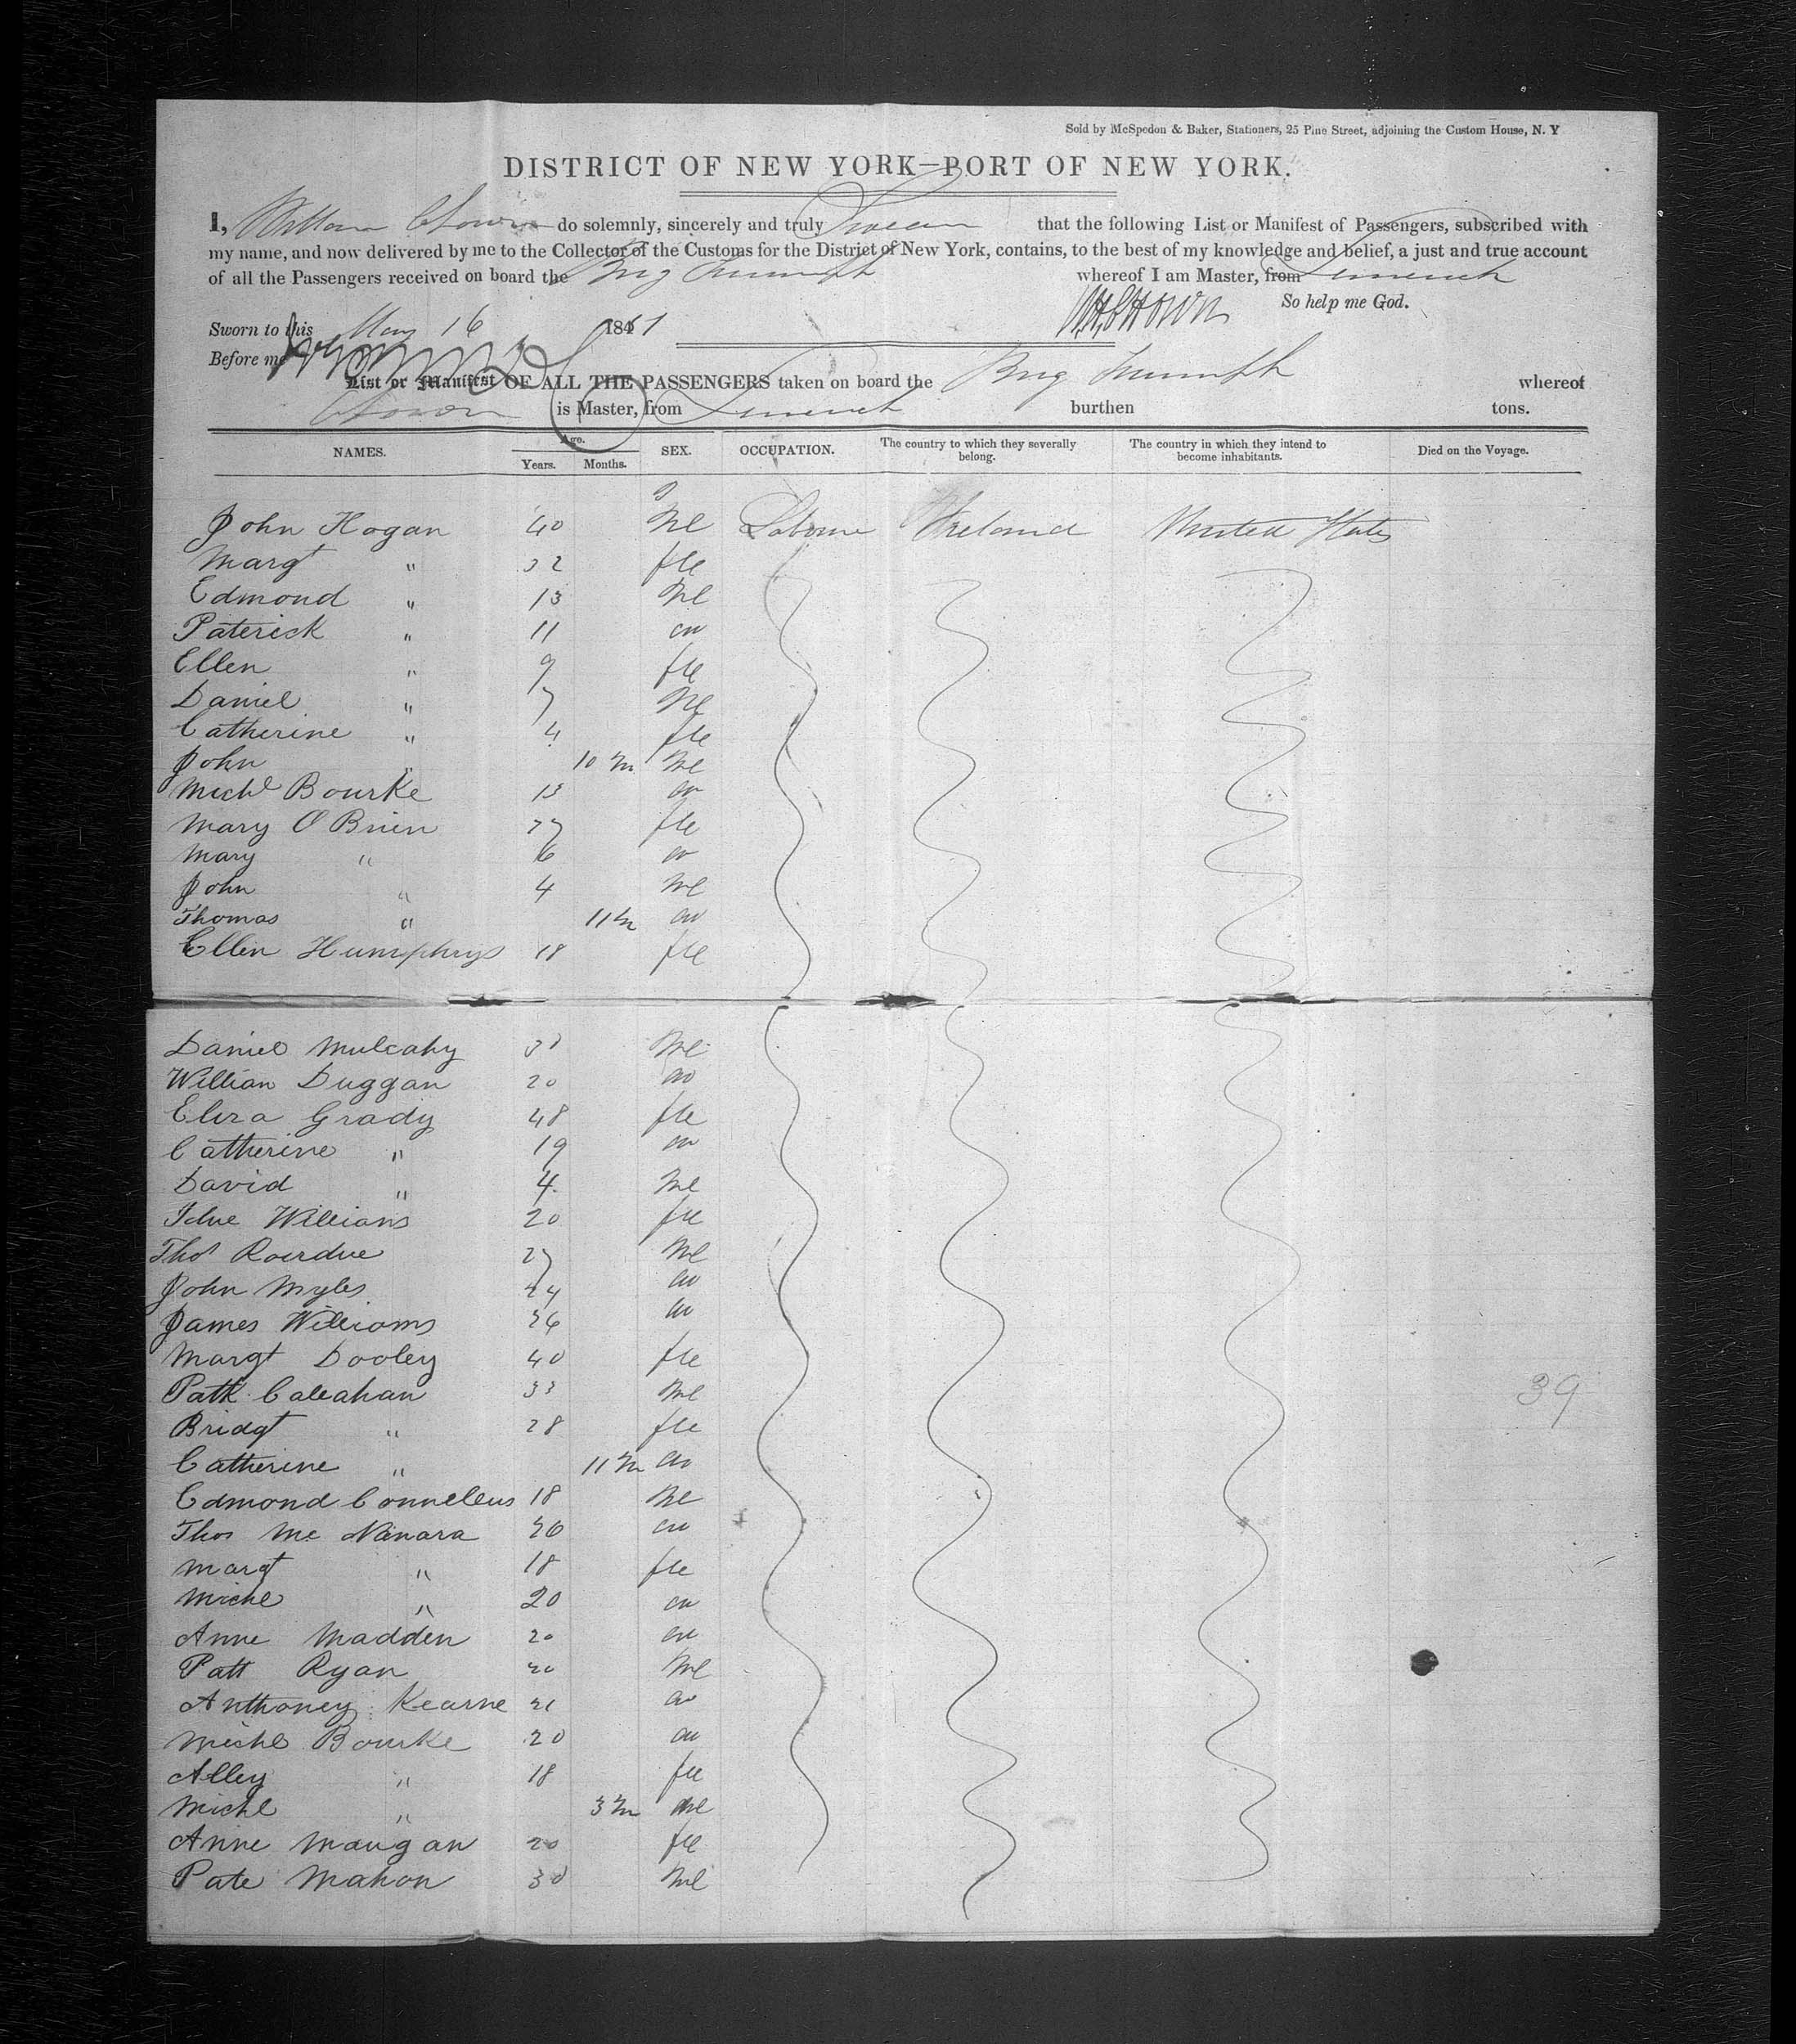 Sold by McSpedon & Baker, Stationers, 25 Pine Street, adjoining the Custom House, N. Y
DISTRICT OF NEW YORK—PORT OF NEW YORK.
I, William do solemnly, sincerely and truly Swear that the following List or Manifest of Passengers, subscribed with
my name, and now delivered by me to the Collector of the Customs for the District of New York, contains, to the best of my knowledge and belief, a just and true account
of all the Passengers received on board the Brig Triumph whereof I am Master, from Limerick
So help me God.
Sworn to this May 16 1851
Before me
List or Manifest OF ALL THE PASSENGERS taken on board the Brig Triumph whereof
is Master, from Limerick burthen tons.
NAMES. Age. Years. Months. SEX. OCCUPATION. The country to which they severally belong. The country in which they intend to become inhabitants. Died on the Voyage.
John Hogan 40 Me Laborer Ireland United States
Margt " 32 fle
Edmond " 13 Me
Paterick " 11 "
Ellen " 9 fle
Daniel " 7 Me
Catherine " 4 fle
John " 10 m Me
Michl Bourke 13
Mary O Brien 27 fle
Mary " 6
John " 4 Me
Thomas " 11 m
Ellen Humphrys 18 fle
Daniel Mulcahy Me
William Duggan 20
Eliza Grady 48 fle
Catherine " 19
David " 4 Me
Williams 20 fle
Thos Rierdue 27 Me
John Myles 24
James Williams 26
Margt Dooley 40 fle
Patk Callahan 33 Me
39
Bridgt " 28 fle
Catherine " 11 m
Edmond Conneleus 18 Me
Thos Mc Namara 26
Margt " 18 fle
Michl " 20
Anne Madden 20
Patt Ryan 20 Me
Anthoney Kearne 21
Michl Bourke 20
Alley " 18 fle
Michl " 3 m Me
Anne Maugan 20 fle
Pate Mahon 30 Me